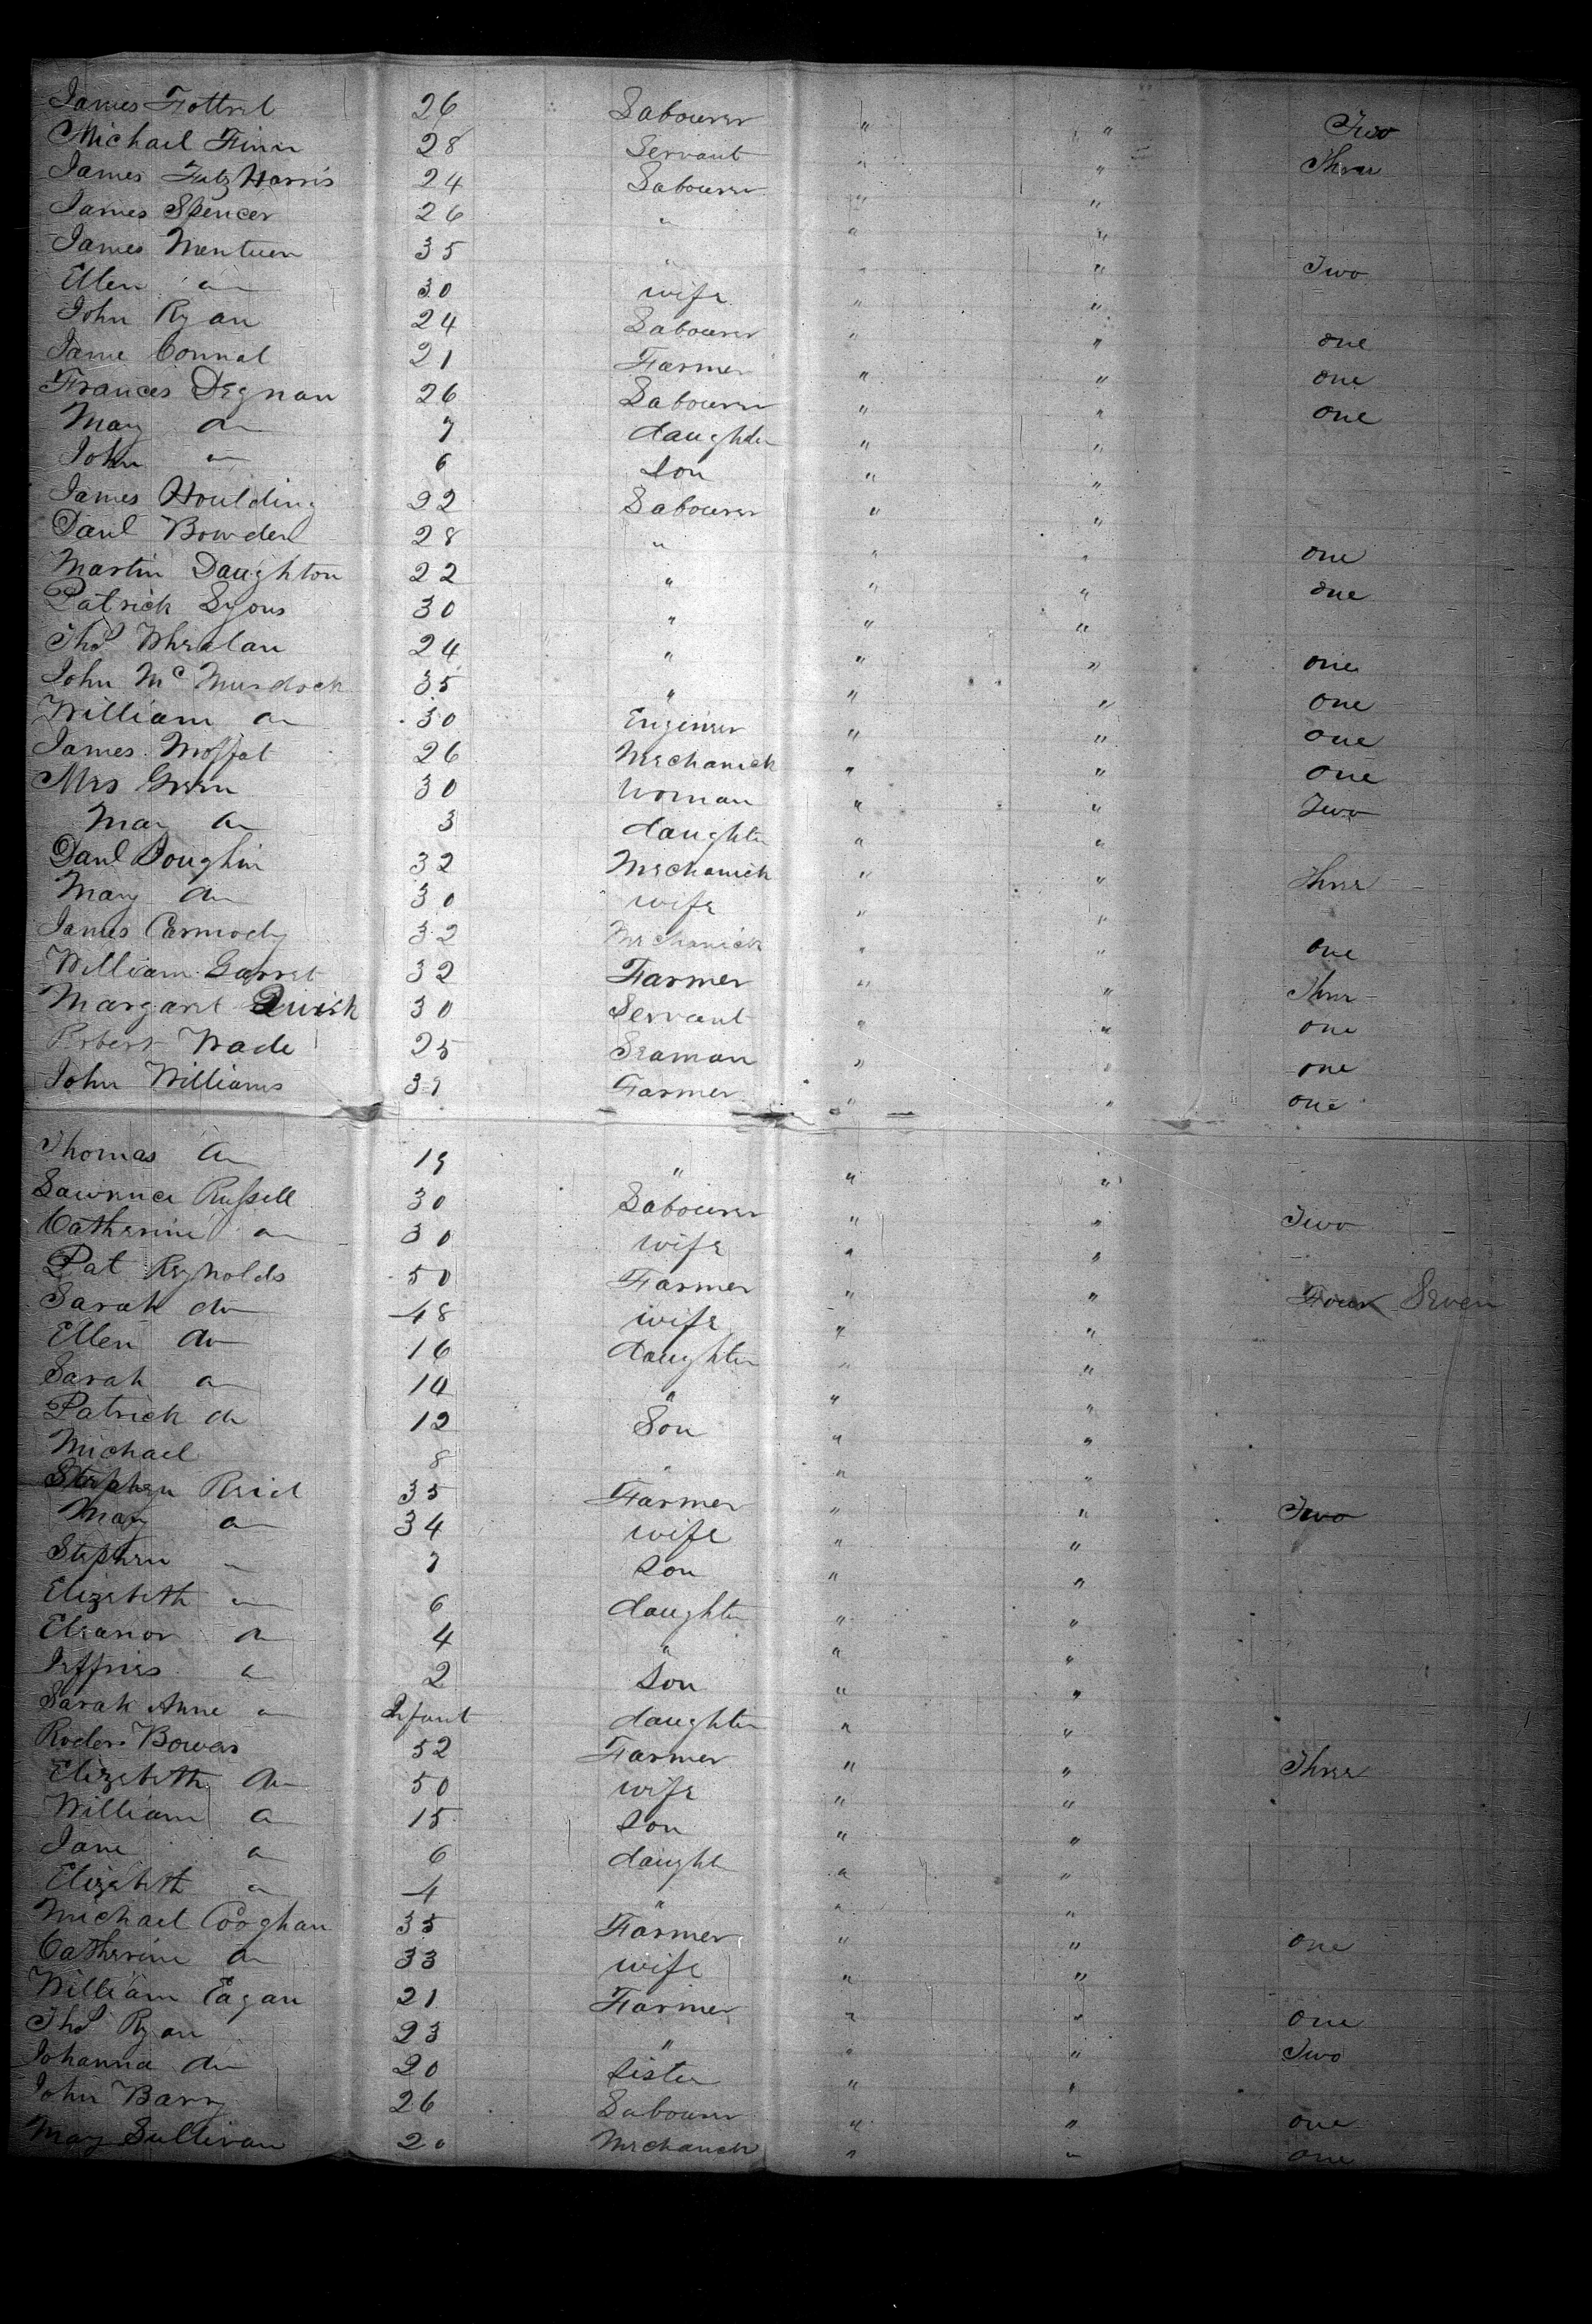 James Fottrel 26 Labourer " " Two
Michael Finn 28 Servant " " Three
James FitzHarris 24 Labourer " "
James Spencer 26 " " "
James 35 " " " Two
Ellen do 30 wife " "
John Ryan 24 Labourer " " one
Jame Connal 21 Farmer " " one
Frances Degnan 26 Labourer " " one
Mary do 7 daughter " "
John do 6 Son " "
James Houlding 22 Labourer " "
Danl Bowden 28 " " " one
Martin Daughton 22 " " " one
Patrick Lyons 30 " " "
Thos Whealan 24 " " " one
John Mc Murdock 35 " " " one
William do 30 Engineer " " one
James Moffat 26 Mechanick " " one
Mrs Green 30 Woman " " Two
Mary do 3 daughter " "
Danl Boughin 32 Mechanick " " three
Mary do 30 wife " "
James Carmody 32 Mechanick " " one
William Garret 32 Farmer " " Three
Margaret Quirk 30 Servant " " one
Robert Wade 25 Seaman " " one
John Williams 39 Farmer " " one
Thomas do 19 " " "
Lawrence Russell 30 Labourer " " Two
Catherine do 30 wife " "
Pat Reynolds 50 Farmer " " Four Seven
Sarah do 48 wife " "
Ellen do 16 daughter " "
Sarah do 14 " " "
Patrick do 12 Son " "
Michael 8 " " "
Stephen Reid 35 Farmer " " Two
Mary do 34 wife " "
Stephen do 7 Son " "
Elizabeth do 6 daughter " "
Eleanor do 4 " " "
Jeffries do 2 Son " "
Sarah Anne do Infant daughter " "
Roder Bowers 52 Farmer " " Three
Elizabeth do 50 wife " "
William do 15 Son " "
Jane do 6 daught " "
Elizabeth do 4 " " "
Michael Cooghan 35 Farmer " " one
Catherine do 33 wife " "
William Eagan 21 Farmer " " one
Thos Ryan 23 " " " Two
Johanna do 20 Sister " "
John Barry 26 Labourer " " one
Mary Sullivan 20 Mechanick " " one